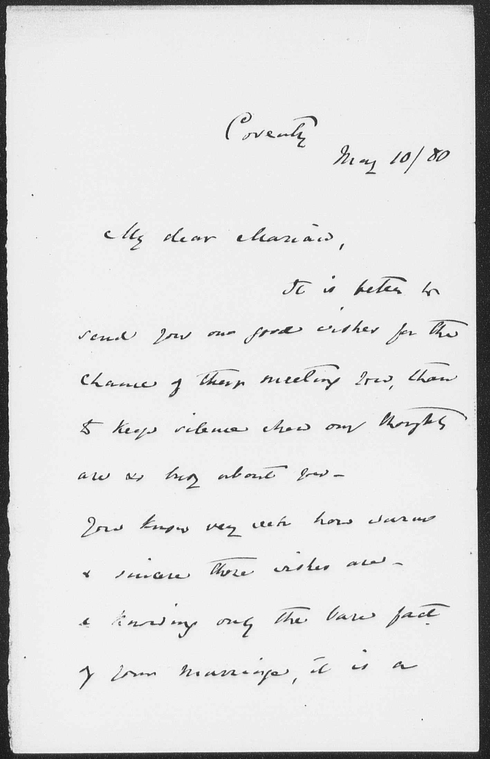 Coventry
May 10/80
My dear Marian,
It is better to
send you our good wishes for the
chance of their meeting you, than
to keep silence when our thoughts
are so busy about you –
You know very well how warm
& sincere those wishes are –
& knowing only the bare fact
of your marriage, it is a